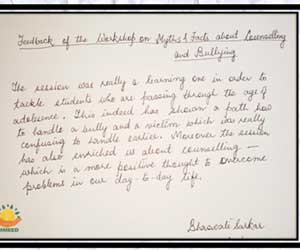 Feedback of the Workshop on Myths & Facts about Counselling
and Bullying
The session was really a learning one in order to
tackle students who are passing through the age of
adolescence. This indeed has shown a path how
to handle a bully and a victim which was really
confusing to handle earlier. Moreover the session
has also enriched us about counselling —
which is a more positive thought to overcome
problems in our day-to-day life.
Bhaswati Sarkar